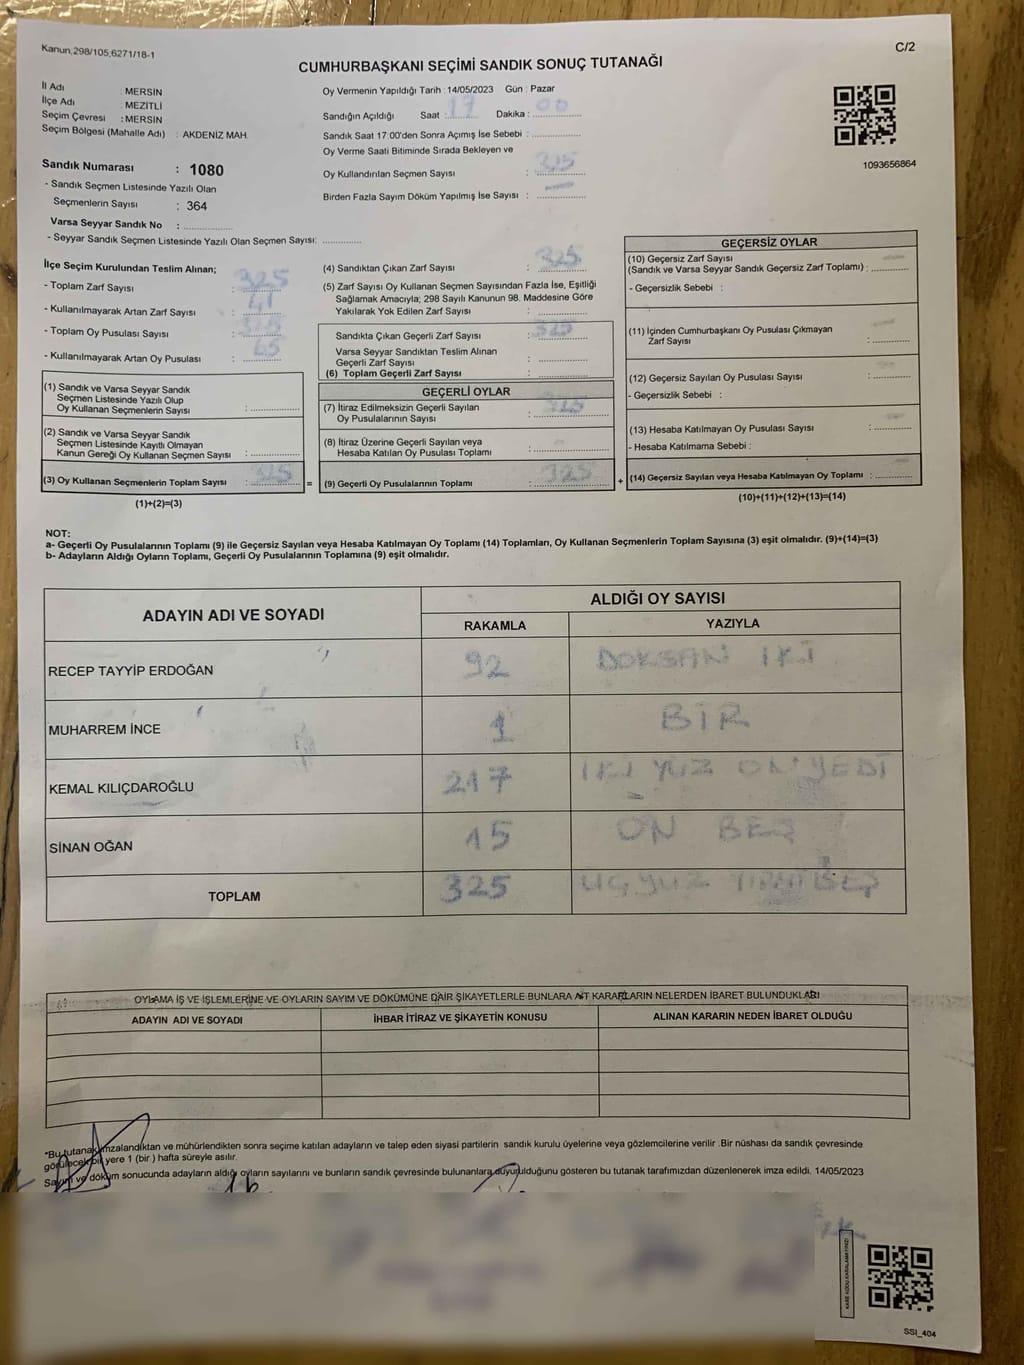 Kanun,298/105,6271/18-1
C/2
CUMHURBAŞKANI SEÇİMİ SANDIK SONUÇ TUTANAĞI
İl Adı : MERSİN
İlçe Adı : MEZİTLİ
Seçim Çevresi : MERSİN
Seçim Bölgesi (Mahalle Adı) : AKDENİZ MAH.
Sandık Numarası : 1080
- Sandık Seçmen Listesinde Yazılı Olan
Seçmenlerin Sayısı : 364
Varsa Seyyar Sandık No :
- Seyyar Sandık Seçmen Listesinde Yazılı Olan Seçmen Sayısı:
Oy Vermenin Yapıldığı Tarih : 14/05/2023 Gün : Pazar
Sandığın Açıldığı Saat : 17 Dakika : 00
Sandık Saat 17:00'den Sonra Açımış İse Sebebi :
Oy Verme Saati Bitiminde Sırada Bekleyen ve
Oy Kullandırılan Seçmen Sayısı : 325
Birden Fazla Sayım Döküm Yapılmış İse Sayısı : —
1093656864
İlçe Seçim Kurulundan Teslim Alınan;
- Toplam Zarf Sayısı : 325
- Kullanılmayarak Artan Zarf Sayısı : 41
- Toplam Oy Pusulası Sayısı :
- Kullanılmayarak Artan Oy Pusulası : 65
(1) Sandık ve Varsa Seyyar Sandık
Seçmen Listesinde Yazılı Olup
Oy Kullanan Seçmenlerin Sayısı :
(2) Sandık ve Varsa Seyyar Sandık
Seçmen Listesinde Kayıtlı Olmayan
Kanun Gereği Oy Kullanan Seçmen Sayısı :
(3) Oy Kullanan Seçmenlerin Toplam Sayısı : 325
(1)+(2)=(3)
(4) Sandıktan Çıkan Zarf Sayısı : 325
(5) Zarf Sayısı Oy Kullanan Seçmen Sayısından Fazla İse, Eşitliği
Sağlamak Amacıyla; 298 Sayılı Kanunun 98. Maddesine Göre
Yakılarak Yok Edilen Zarf Sayısı :
Sandıkta Çıkan Geçerli Zarf Sayısı : 325
Varsa Seyyar Sandıktan Teslim Alınan
Geçerli Zarf Sayısı :
(6) Toplam Geçerli Zarf Sayısı :
GEÇERLİ OYLAR
(7) İtiraz Edilmeksizin Geçerli Sayılan
Oy Pusulalarının Sayısı : 325
(8) İtiraz Üzerine Geçerli Sayılan veya
Hesaba Katılan Oy Pusulası Toplamı :
= (9) Geçerli Oy Pusulalarının Toplamı : 325
GEÇERSİZ OYLAR
(10) Geçersiz Zarf Sayısı
(Sandık ve Varsa Seyyar Sandık Geçersiz Zarf Toplamı) :
- Geçersizlik Sebebi :
(11) İçinden Cumhurbaşkanı Oy Pusulası Çıkmayan
Zarf Sayısı :
(12) Geçersiz Sayılan Oy Pusulası Sayısı :
- Geçersizlik Sebebi :
(13) Hesaba Katılmayan Oy Pusulası Sayısı :
- Hesaba Katılmama Sebebi :
+ (14) Geçersiz Sayılan veya Hesaba Katılmayan Oy Toplamı :
(10)+(11)+(12)+(13)=(14)
NOT:
a- Geçerli Oy Pusulalarının Toplamı (9) ile Geçersiz Sayılan veya Hesaba Katılmayan Oy Toplamı (14) Toplamları, Oy Kullanan Seçmenlerin Toplam Sayısına (3) eşit olmalıdır. (9)+(14)=(3)
b- Adayların Aldığı Oyların Toplamı, Geçerli Oy Pusulalarının Toplamına (9) eşit olmalıdır.
ADAYIN ADI VE SOYADI
ALDIĞI OY SAYISI
RAKAMLA YAZIYLA
RECEP TAYYİP ERDOĞAN 92 DOKSAN İKİ
MUHARREM İNCE 1 BİR
KEMAL KILIÇDAROĞLU 217 İKİ YÜZ ON YEDİ
SİNAN OĞAN 15 ON BEŞ
TOPLAM 325 ÜÇ YÜZ YİRMİ BEŞ
OYLAMA İŞ VE İŞLEMLERİNE VE OYLARIN SAYIM VE DÖKÜMÜNE DAİR ŞİKAYETLERLE BUNLARA AİT KARARLARIN NELERDEN İBARET BULUNDUKLARI
ADAYIN ADI VE SOYADI İHBAR İTİRAZ VE ŞİKAYETİN KONUSU ALINAN KARARIN NEDEN İBARET OLDUĞU
*Bu tutanak imzalandıktan ve mühürlendikten sonra seçime katılan adayların ve talep eden siyasi partilerin sandık kurulu üyelerine veya gözlemcilerine verilir .Bir nüshası da sandık çevresinde
görülecek bir yere 1 (bir ) hafta süreyle asılır.
Sayım ve döküm sonucunda adayların aldığı oyların sayılarını ve bunların sandık çevresinde bulunanlara duyurulduğunu gösteren bu tutanak tarafımızdan düzenlenerek imza edildi. 14/05/2023
KARE KODU KARALAMAYINIZ!
SSI_404